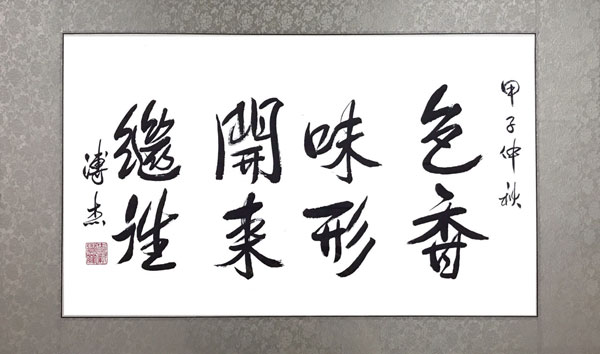 甲子仲秋
色香
味形
開来
繼往
溥杰